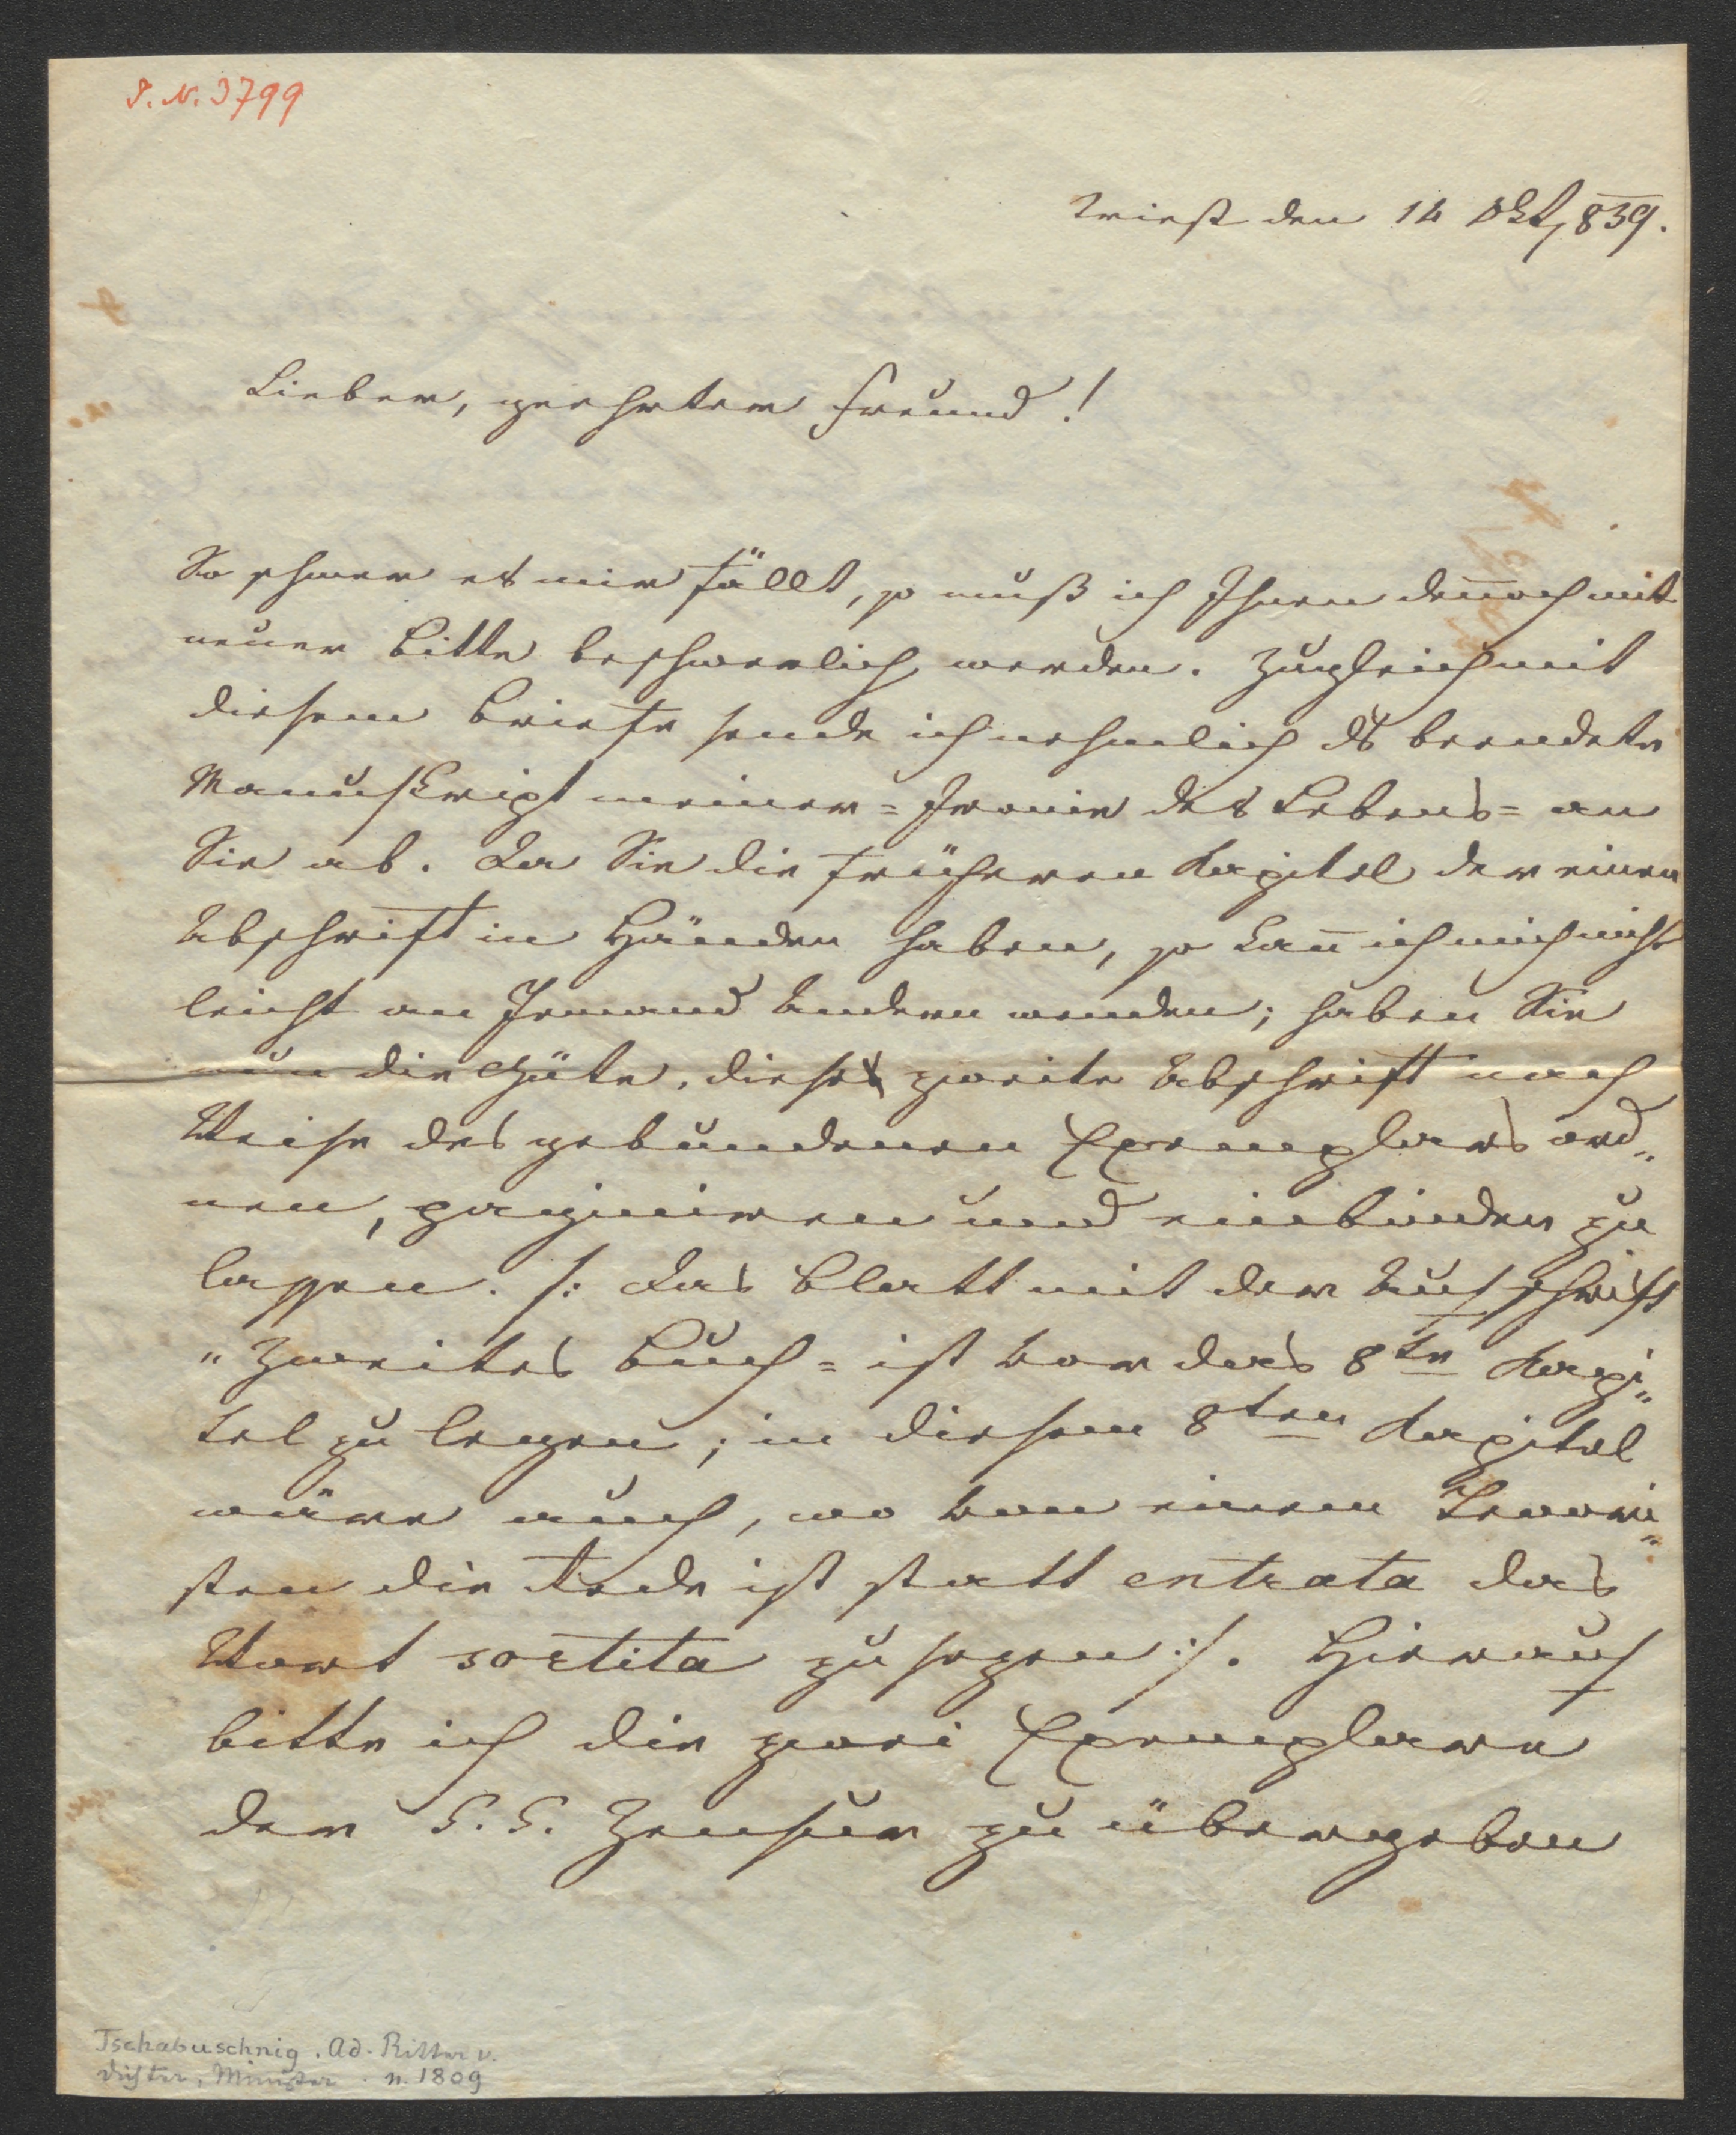 I. N. 3799
Triest den 14 Okt, 839.
Lieber, geehrter Freund!
So schwer es mir fällt, so muß ich Ihnen den̄och mit
neuer Bitte beschwerlich werden. Zugleich mit
diesem Briefe sende ich nehmlich ds beendete
Manuskript meiner = Ironie des Lebens = an
Sie ab. Da Sie die früheren Kapitel der einen
Abschrift in Händen haben, so kan̄ ich mich nicht
leicht an Jemand Andern wenden; haben Sie
nun die Güte, diese zweite Abschrift nach
Weise des gebundenen Exemplars ord„
nen, paginiren und einbinden zu
lassen. /: Das Blatt mit der Aufschrift
„ Zweites Buch = ist vor das 8te Kapi„
tel zu legen; in diesem 8ten Kapitel
wäre auch, wo von einem Tenori„
sten die Rede ist statt entrata das
Wort sortita zu sezen :/. Hierauf
bitte ich die zwei Exemplare
der k. k. Zensur zu übergeben
Tschabuschnig, Ad. Ritter v.
Dichter, Minister . n. 1809